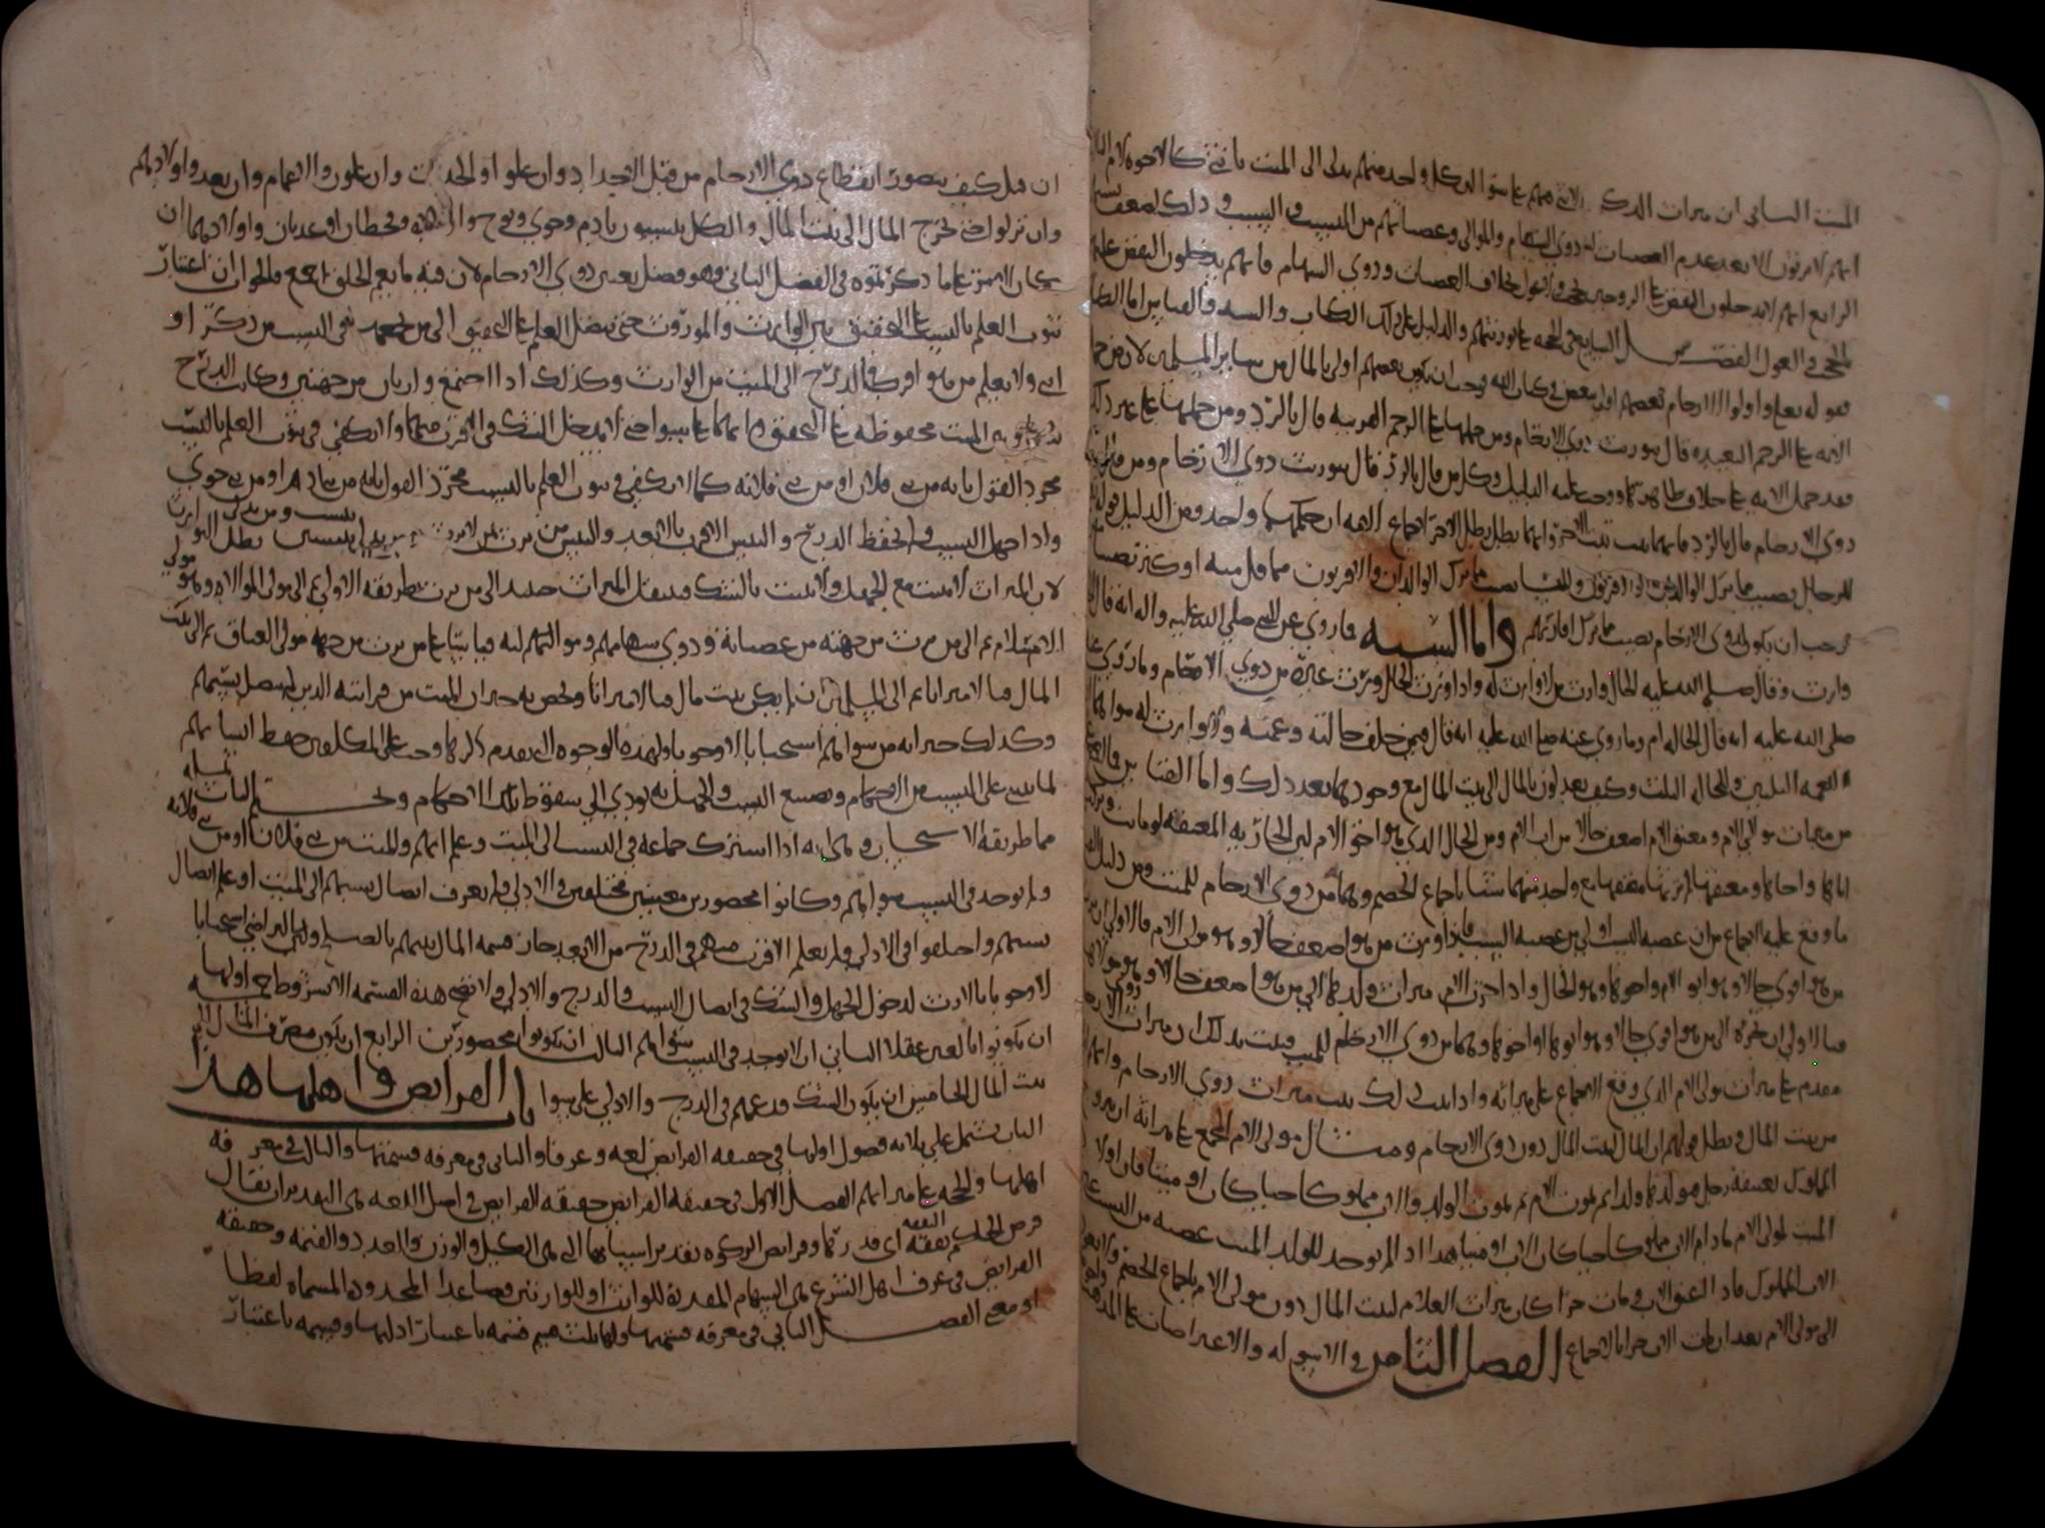 الميت الثاني ان ميراث الذكر والانثى منهم على سوا اذ كل واحد منهم يدلي الى الميت بانثى كالاخوة لام
انهم لا يرثون الا بعد عدم العصبات وذوي السهام والموالي وعصباتهم من النسب والسبب وذلك لضعف
الرابع انهم لا يدخلون النقص على الزوجين بخلاف العصبات وذوي السهام فانهم يدخلون النقص عليهم
بالحجب والعول الفصل السابع في الحجة على توريثهم والدليل على ذلك الكتاب والسنة والقياس اما الكتاب
فقوله تعالى واولوا الارحام بعضهم اولى ببعض في كتاب الله فوجب ان يكون بعضهم اولى بالمال من سائر المسلمين لان من حمل
الاية على الرحم البعيدة قال بتوريث ذوي الارحام ومن حملها على الرحم القريبة قال بالرد ومن حملها على غير ذلك
فقد حمل الاية على خلاف ظاهرها ووجب عليه الدليل وكل من قال بالرد قال بتوريث ذوي الارحام ومن
ذوي الارحام قال بالرد فايهما ثبت ثبت الاخر وايهما بطل بطل الاخر اجماع الامة ان حكمهما واحد ومن الدليل قوله
للرجال نصيب مما ترك الوالدان والاقربون وللنساء نصيب مما ترك الوالدان والاقربون مما قل منه او كثر نصيبا
فوجب ان يكون لذوي الارحام نصيب مما ترك اقاربهم واما السنة فما روي عن النبي صلى الله عليه واله انه قال
وارث وقال صلى الله عليه الخال وارث من لا وارث له واذا ورث الخال ورث غيره من ذوي الارحام وما روي
صلى الله عليه انه قال الخالة ام وما روي عنه صلى الله عليه انه قال فيمن خلف خالته وعمته ولا وارث له سواهما
العمة الثلثين والخالة الثلث وكيف يعدلون بالمال الى بيت المال مع وجودهما بعد ذلك واما القياس
من مولى الام ومعتق الام اضعف حالا من اب الام ومن الخال الذي هو اخو الام
اباها واخاها ومعتقها لم يرثها معتقها مع واحد منهما شيئا باجماع الخصم وهما من ذوي الارحام للميت ومن دليل
ما وقع عليه الاجماع من ان عصبة النسب اولى من عصبة السبب فاذا ورث من هو اضعف حالا وهو مولى الام فالاولى
من هو اقوى حالا وهو ابو الام واخوها وهو الخال واذا احرزت الام ميراث ولدها الى من هو اضعف حالا وهو مولاها
فبالاولى ان تجره الى من هو اقوى حالا وهو ابوها او اخوها وهما من ذوي الارحام للميت فثبت بذلك ان ميراث ذوي الارحام
مقدم على ميراث مولى الام الذي وقع الاجماع على ميراثه واذا ثبت ذلك ثبت ميراث ذوي الارحام وانهم
من بيت المال وبطل قولهم ان المال لبيت المال دون ذوي الارحام ومثال مولى الام المجمع على ميراثه ان يتزوج
المملوك بعتيقة رجل فتولد لهما ولد ثم تموت الام ثم يموت الولد والاب مملوكا حيا كان او ميتا فان الولاء
الميت لمولى الام ما دام الاب مملوكا حيا كان الاب او ميتا هذا اذا لم يوجد للولد الميت عصبة من النسب
الاب المملوك فاذا اعتق الاب ومات حرا كان ميراث الغلام لبيت المال دون مولى الام باجماع الخصم
الى مولى الام بعد ان مات الاب حرا بالاجماع الفصل الثامن في الاسولة والاعتراضات على
ان قيل كيف يتصور انقطاع ذوي الارحام من قبل الاجداد وان علوا او الجدات وان علون والاعمام وان بعدوا واولادهم
وان نزلوا حتى يخرج المال الى بيت المال والكل ينتسبون بادم وحوى ونوح وقحطان او عدنان واولادهما ان
كان العرب على ما ذكرتموه في الفصل الثاني وهو فصل يعني ذوي الارحام لان فيه ما يعم الخلق اجمع والجواب ان اعتبار
ثبوت العلم بالنسب على التحقيق بين الوارث والموروث حتى يتصل العلم على التحقيق الى من يجمعهم في النسب من ذكر او
انثى ولا يعلم من هو اقرب في الدرج الى الميت من الوارث وكذلك اذا اجتمع وارثان من جهتين وكانت الدرج
بينهما وبين الميت محفوظة على التحقيق وانهما على سوا حتى لا يدخل الشك في الاقرب منهما ولا يكفي في ثبوت العلم بالنسب
مجرد القول بانه من بني فلان او من بني فلانة كما لا يكفي في ثبوت العلم بالنسب مجرد القول بانه من بني ادم او من بني حوى
واذا جهل النسب ولم تحفظ الدرج والتبس الاقرب بالابعد والتبس من يرث بمن لا يرث بطل التوارث
لان الميراث لا يثبت مع الجهل ولا يثبت بالشك فينتقل الميراث حينئذ الى من يرث بطريقة الاولى ثم الى مولى الموالاة وهو مولى
الاسلام ثم الى من يرث من جهته من عصباته وذوي سهامهم ومواليهم قياسا على من يرث من جهة مولى العتاق ثم الى بيت
المال فيئا لا ميراثا ثم الى المسلمين ان لم يكن بيت مال فيئا لا ميراثا ويخص به جيران الميت من قرابته الذين لم يتصل نسبهم
وكذلك جيرانه من سواهم استحبابا لا وجوبا ولهذه الوجوه التي تقدم ذكرها وجب على المكلفين حفظ انسابهم
لما ينبني على النسب من الاحكام وتضييع النسب والجهل به يؤدي الى سقوط تلك الاحكام ونختم الباب بمسئلة
مما طريقه الاستحباب وهي انه اذا اشترك جماعة في النسب الى الميت وعلم انهم والميت من بني فلان او من بني فلانة
ولم يوجد في النسب سواهم وكانوا محصورين معينين مختلفين في الادلى فلم يعرف اتصال نسبهم الى الميت او علم اتصال
نسبهم واختلفوا في الادلى فلم يعلم الاقرب منهم في الدرج من الابعد جاز قسمة المال بينهم بالصلح والتراضي استحبابا
لا وجوبا بالارث لدخول الجهل والشك في اتصال النسب والدرج والادلى ولا تصح هذه القسمة الا بشروط خمسة اولها
ان يكونوا بالغين عقلا الثاني ان لا يوجد في النسب سواهم الثالث ان يكونوا محصورين الرابع ان يكون مصرف المال الى
بيت المال الخامس ان يكون الشك قد عمهم في الدرج والادلى على سوا باب الفرائض واهلها هذا
الباب يشتمل على ثلاثة فصول اولها في حقيقة الفرائض لغة وعرفا والثاني في معرفة قسمتها والثالث في معرفة
اهلها والحجة على ميراثهم الفصل الاول في حقيقة الفرائض حقيقة الفرائض في اصل اللغة هي التقدير ان يقال
فرض الحاكم النفقة اي قدرها وفرائض الزكوة تقدير اسبابها التي هي الكيل والوزن والعدد والقيمة وحقيقة
الفرائض في عرف اهل الشرع هي السهام المقدرة للوارث او للوارثين فصاعدا المحدودة المسماة لفظا
او معنى الفصل الثاني في معرفة قسمتها ولها ثلث قسم قسمة باعتبار ادلتها وقسمة باعتبار